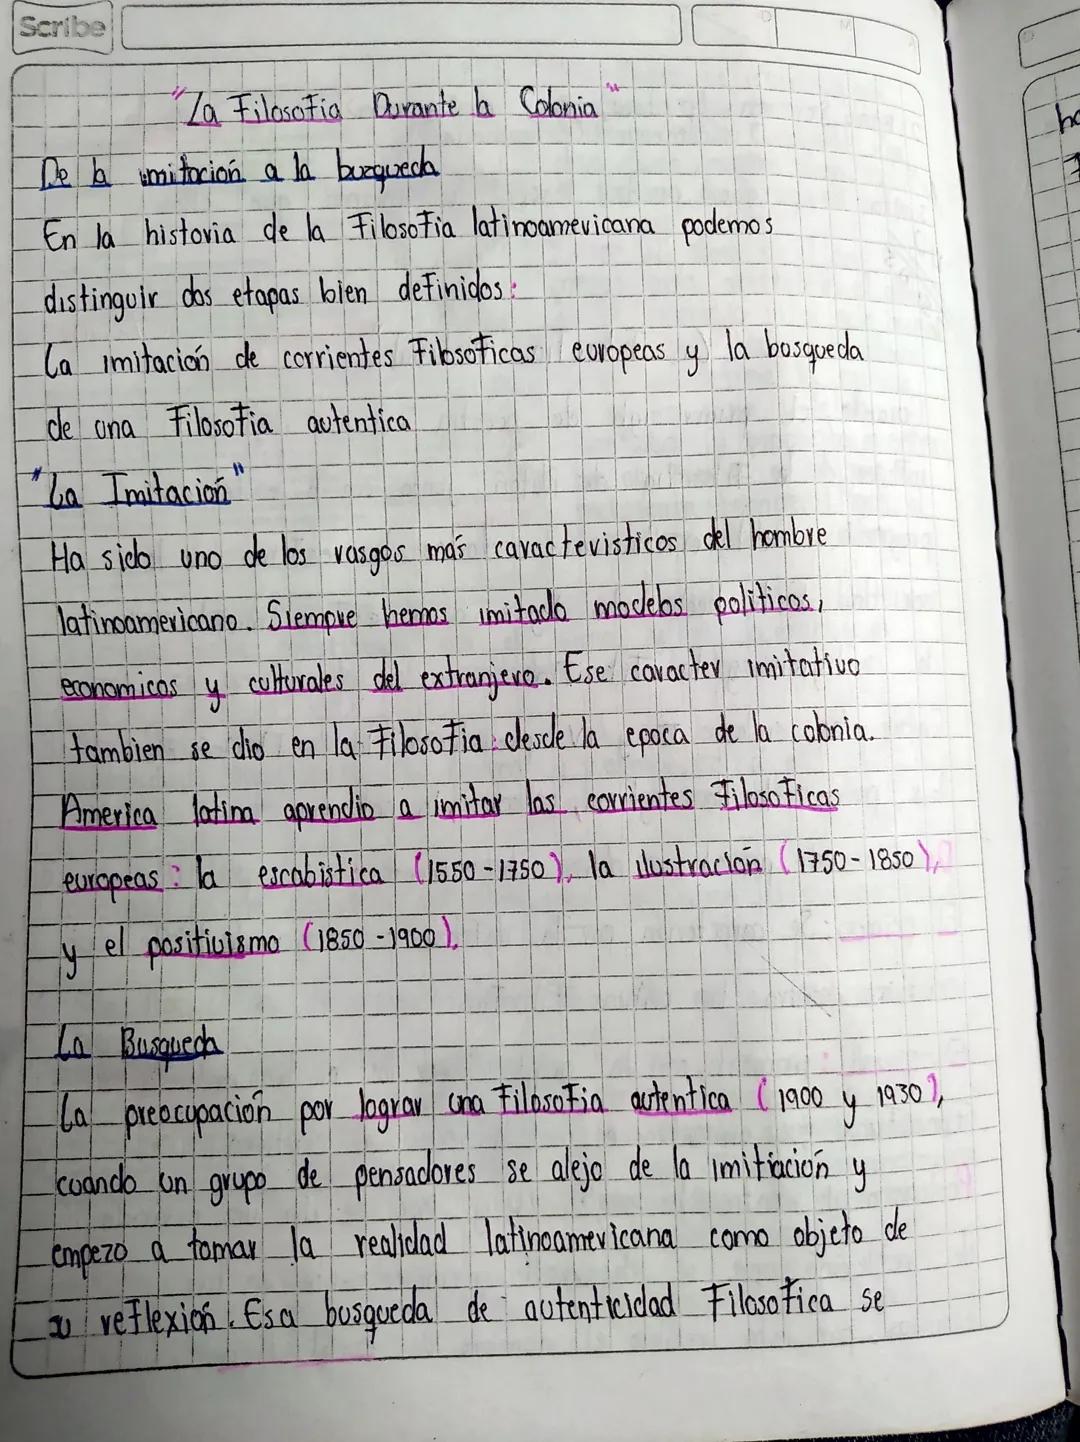 Scribe
"La Filosofia Durante la Colonia"
De la imitación a la buzqueda
En la historia de la Filosofia latinoamericana podemos
distinguir dos etapas bien definidos:
La imitación de corrientes Filosoficas europeas y la busqueda
de una Filosofia autentica
"La Imitación"
Ha sido uno de los rasgos más caracteristicos del hombre
latinoamericano. Siempre hemos imitado modelos politicos,
economicos y culturales del extranjero. Ese caracter imitativo
tambien se dio en la Filosofia: desde la epoca de la colonia.
America latina aprendio a imitar las corrientes Filosoficas
europeas: la escabistica (1550-1750), la ilustración (1750-1850),
y el positivismo (1850-1900).
La Busqueda
La preocupación por lograr una Filosofia autentica (1900 y 1930),
cuando un grupo de pensadores se alejo de la imitiación y
empezo a tomar la realidad latinoamericana como objeto de
su reflexión. Esa busqueda de autenticidad Filosofica se